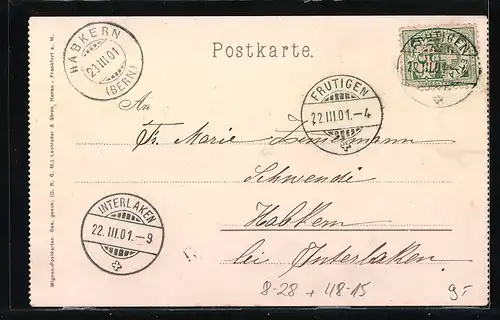 Postkarte.
HABKERN
23 III 01
(BERN)
FRUTIGEN
22 III.01.–4
FRUTIGEN
INTERLAKEN
22.III.01.–9
An
Fr. Marie
Schwendi
Habkern
bei Interlaken.
8-28 + 48-15
9.-
Mignon-Postkarten. Ges. gesch. (D. R. G. M.)
Hanau - Frankfurt a. M.